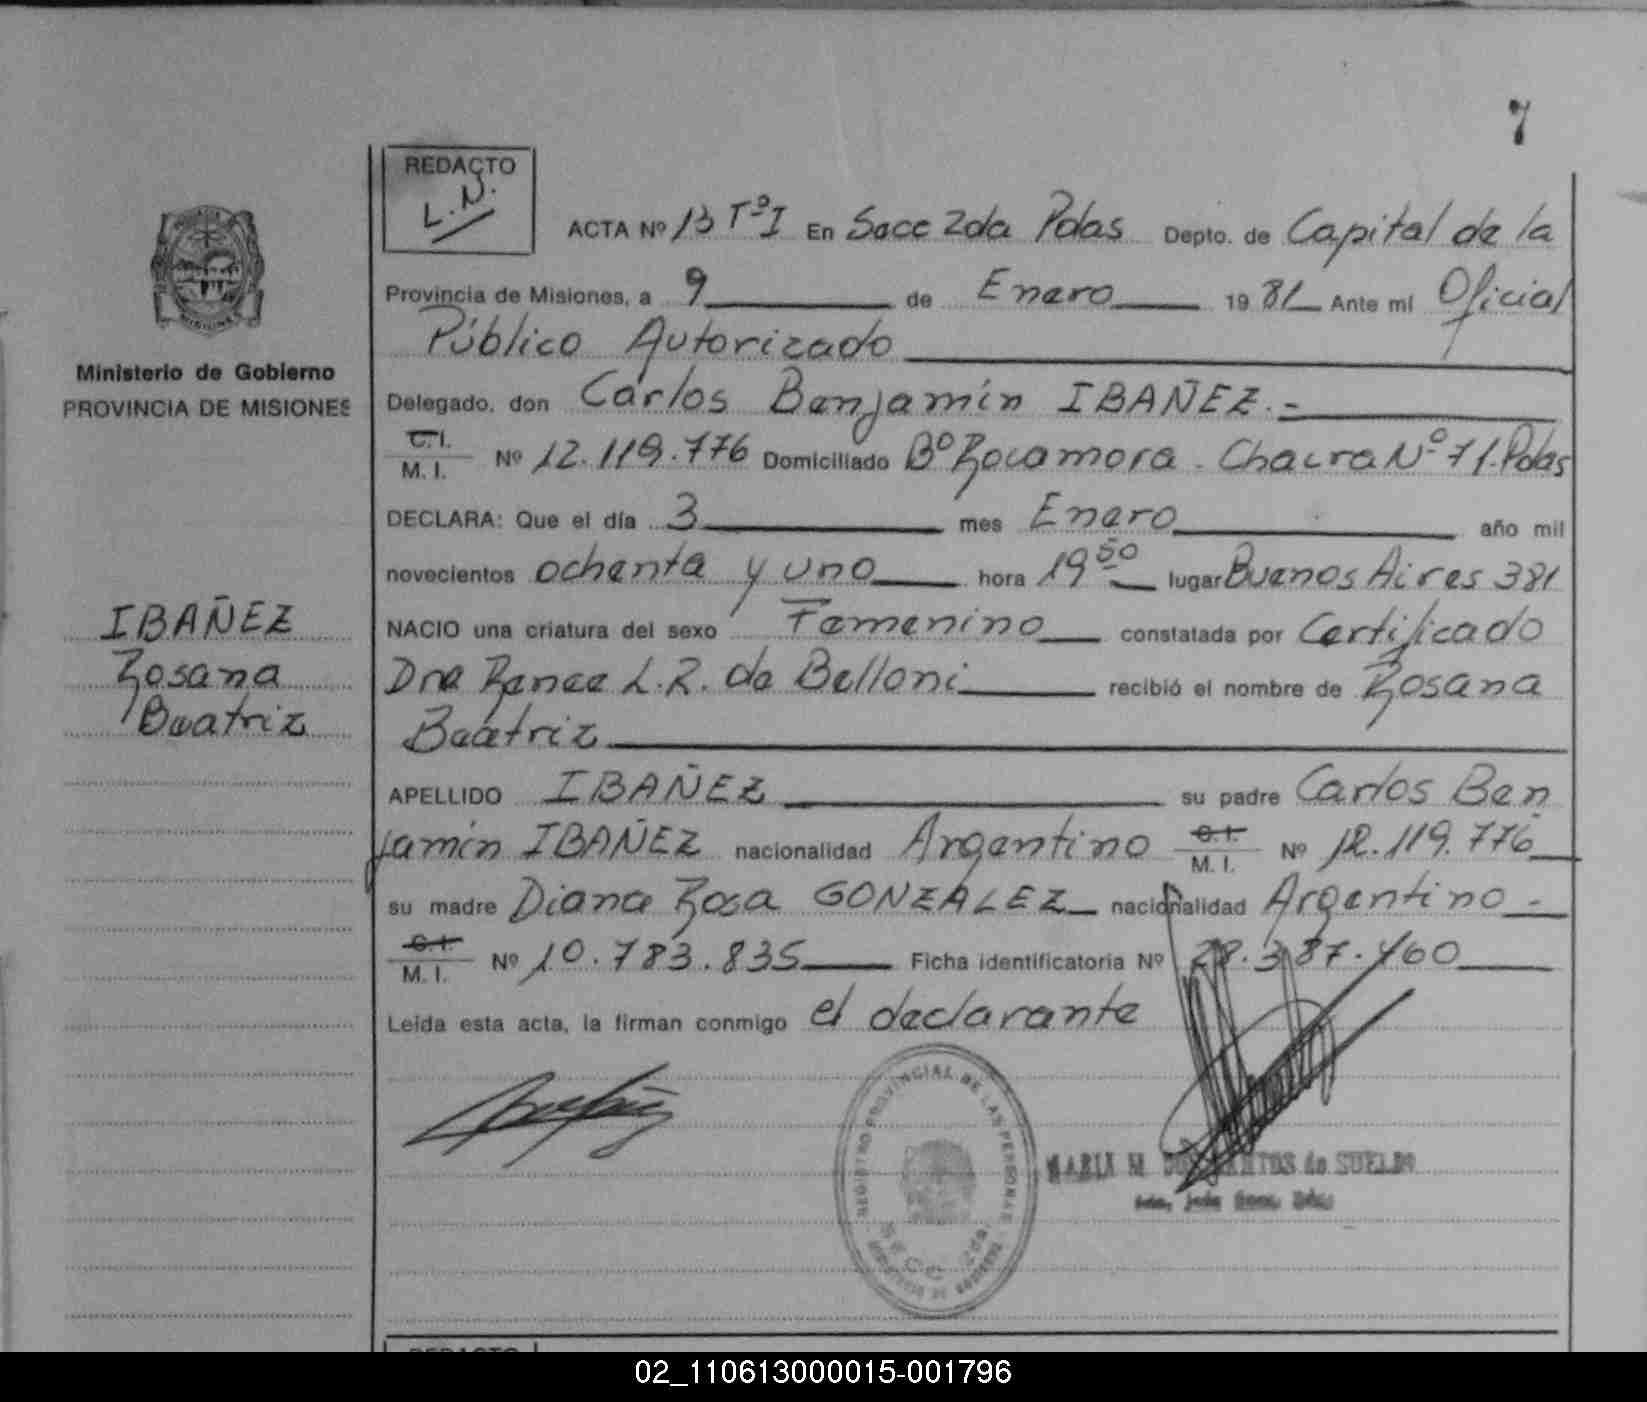 7
REDACTO
L.N.
ACTA Nº 13 Tº I En Secc 2da Pdas Depto. de Capital de la
Provincia de Misiones, a 9 de Enero 1981 Ante mi Oficial
Público Autorizado
Delegado, don Carlos Benjamín IBAÑEZ.-
C.I. M.I. Nº 12.119.776 Domiciliado Bº Rocamora - Chacra Nº 71. Pdas
DECLARA: Que el día 3 mes Enero año mil
novecientos ochenta y uno hora 19 50 lugar Buenos Aires 381
NACIO una criatura del sexo Femenino constatada por Certificado
Dra Renee L.R. de Belloni recibió el nombre de Rosana
Beatriz
APELLIDO IBAÑEZ su padre Carlos Ben
jamín IBAÑEZ nacionalidad Argentino C.I. M.I. Nº 12.119.776
su madre Diana Rosa GONZALEZ nacionalidad Argentino -
C.I. M.I. Nº 10.783.835 Ficha identificatoria Nº 28.387.460
Leída esta acta, la firman conmigo el declarante
Ministerio de Gobierno
PROVINCIA DE MISIONES
IBAÑEZ
Rosana
Beatriz
REGISTRO PROVINCIAL DE LAS PERSONAS
SECC. 2da
MARIA M. de SUELDO
REDACTO
02_110613000015-001796